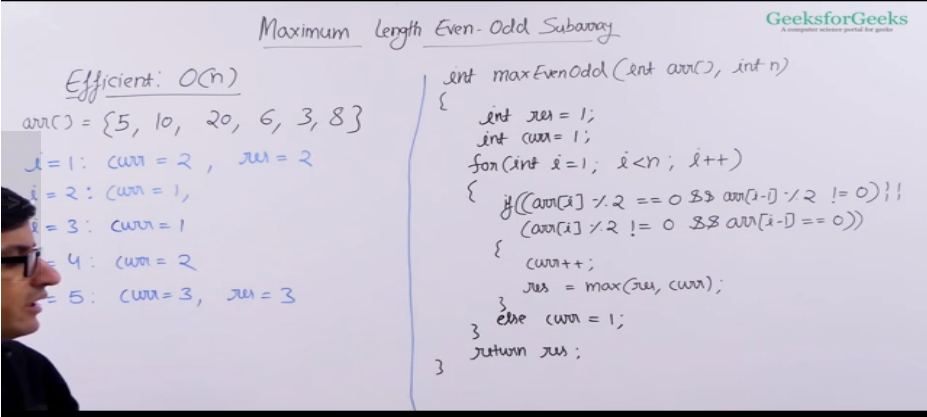 Maximum Length Even-Odd Subarray
GeeksforGeeks
A computer science portal for geeks
Efficient: O(n)
arr[] = {5, 10, 20, 6, 3, 8}
i=1: curr = 2, res = 2
i = 2: curr = 1,
= 3: curr = 1
= 4: curr = 2
= 5: curr = 3, res = 3
int maxEvenOdd(int arr[], int n)
{
int res = 1;
int curr = 1;
for(int i=1; i<n; i++)
{ if((arr[i] % 2 == 0 && arr[i-1] % 2 != 0) ||
(arr[i] % 2 != 0 && arr[i-1] == 0))
{
curr++;
res = max(res, curr);
}
else curr = 1;
}
return res;
}